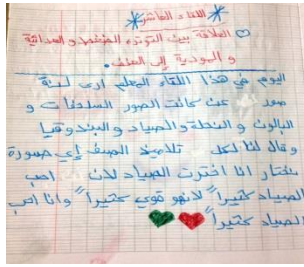 اللقاء العاشر
العلاقة بين التوتر المنخفض والعدائية
و المودية إلى العنف.
اليوم في هذا اللقاء المعلم ارى لنا
صور عن كانت الصور السلحفات و
البالون و النحلة والصياد و البندوقيا
وقال لنا لكل تلاميذ الصف إي صورة
نختار انا اخترت الصياد لان احب
الصياد كثيراً لانهو قوي كثيراً وانا احب
الصياد كثيراً